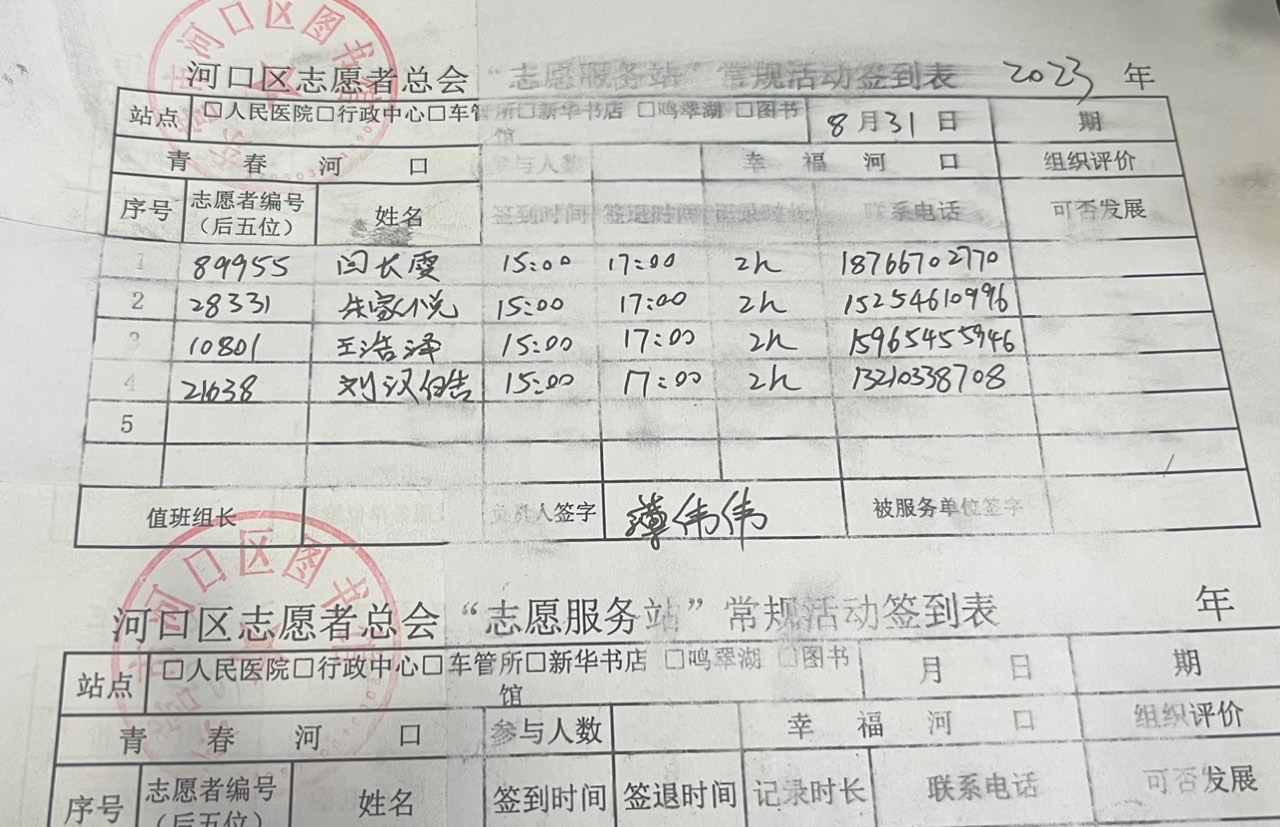 河口区图书
河口区志愿者总会“志愿服务站”常规活动签到表 2023 年
站点 □人民医院□行政中心□车管所□新华书店 □鸣翠湖 □图书馆 8月31日 期
青春河口 参与人数 幸福河口 组织评价
序号 志愿者编号（后五位） 姓名 签到时间 签退时间 记录时长 联系电话 可否发展
1 89955 闫长雯 15:00 17:00 2h 18766702770
2 28331 15:00 17:00 2h 15254610996
3 10801 王浩泽 15:00 17:00 2h 15965455946
4 21638 15:00 17:00 2h 13210338708
5
值班组长 负责人签字 薄伟伟 被服务单位签字
河口区图书
河口区志愿者总会“志愿服务站”常规活动签到表 年
站点 □人民医院□行政中心□车管所□新华书店 □鸣翠湖 □图书馆 月 日 期
青春河口 参与人数 幸福河口 组织评价
序号 志愿者编号（后五位） 姓名 签到时间 签退时间 记录时长 联系电话 可否发展